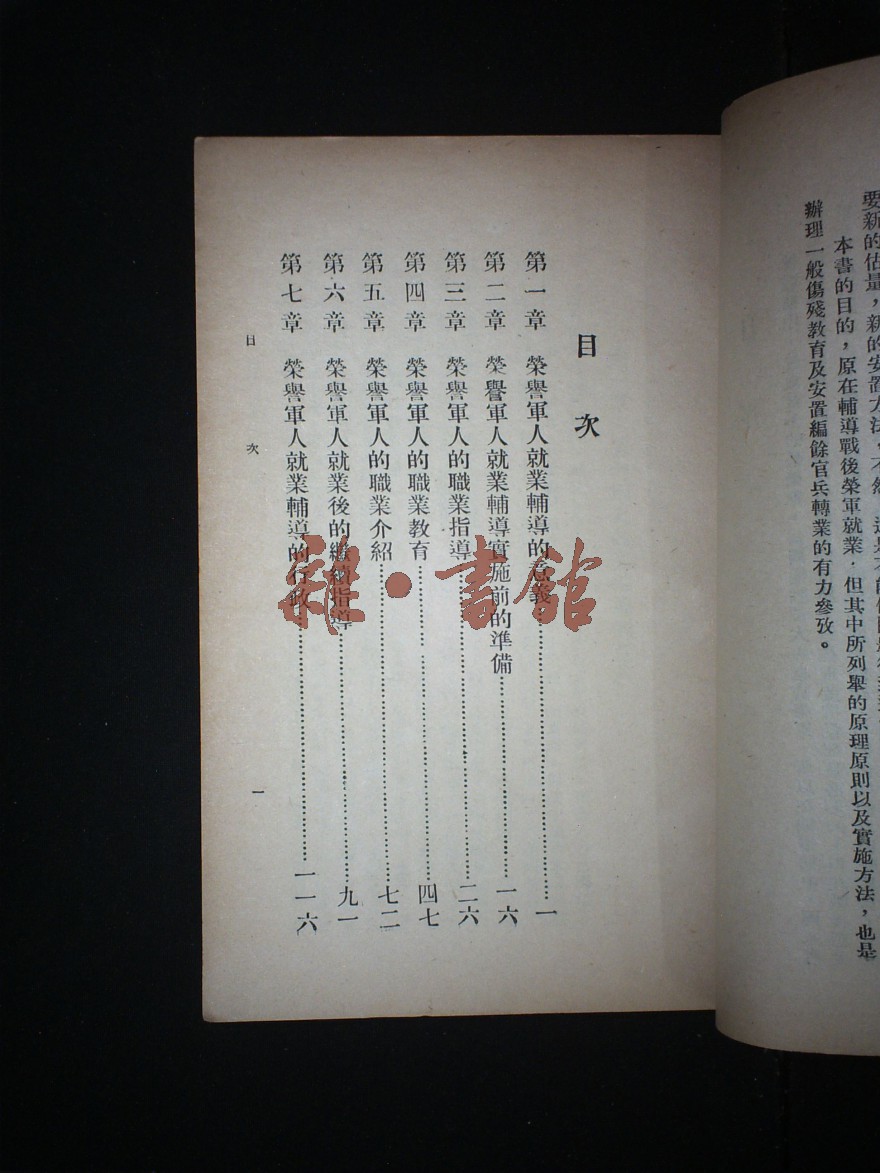 要新的估量，新的安置方法，不然
本書的目的，原在輔導戰後榮軍就業．但其中所列舉的原理原則以及實施方法，也是
辦理一般傷殘教育及安置編餘官兵轉業的有力參攷。
目次
第一章 榮譽軍人就業輔導的意義……一
第二章 榮譽軍人就業輔導實施前的準備……一六
第三章 榮譽軍人的職業指導……二六
第四章 榮譽軍人的職業教育……四七
第五章 榮譽軍人的職業介紹……七二
第六章 榮譽軍人就業後的繼續指導……九一
第七章 榮譽軍人就業輔導的行政……一一六
目次 一
雜·書館